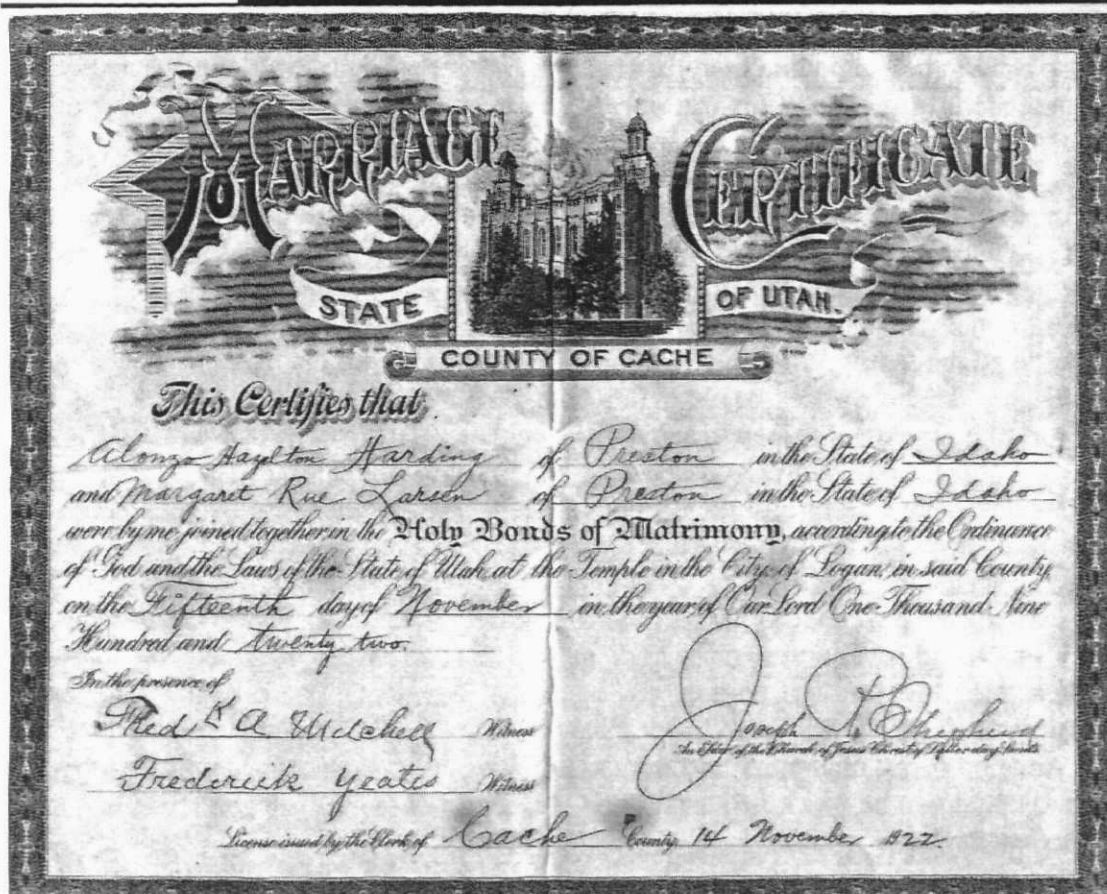 MARRIAGE CERTIFICATE
STATE OF UTAH.
COUNTY OF CACHE
This Certifies that
Alonzo Hazelton Harding of Preston in the State of Idaho
and Margaret Rue Larsen of Preston in the State of Idaho
were by me joined together in the Holy Bonds of Matrimony, according to the Ordinance
of God and the Laws of the State of Utah at the Temple in the City of Logan, in said County,
on the Fifteenth day of November in the year of Our Lord One Thousand Nine
Hundred and twenty two.
In the presence of
Fred K A Mitchell Witness
Joseph R. Shepherd
An Elder of the Church of Jesus Christ of Latter-day Saints
Frederick Yeates Witness
License issued by the Clerk of Cache County, 14 November 1922.